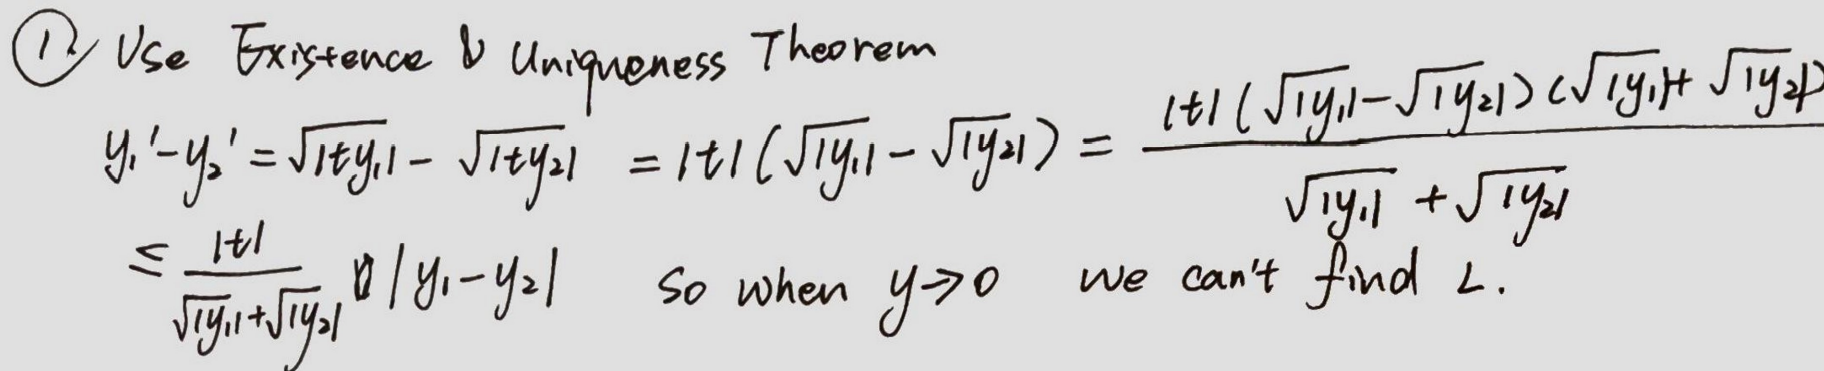 ①. Use Existence & Uniqueness Theorem
y₁' - y₂' = √|ty₁| - √|ty₂| = |t| (√|y₁| - √|y₂|) = |t| (√|y₁| - √|y₂|) (√|y₁| + √|y₂|) / √|y₁| + √|y₂|
≤ |t| / √|y₁| + √|y₂| |y₁ - y₂| So when y → 0 we can't find L.